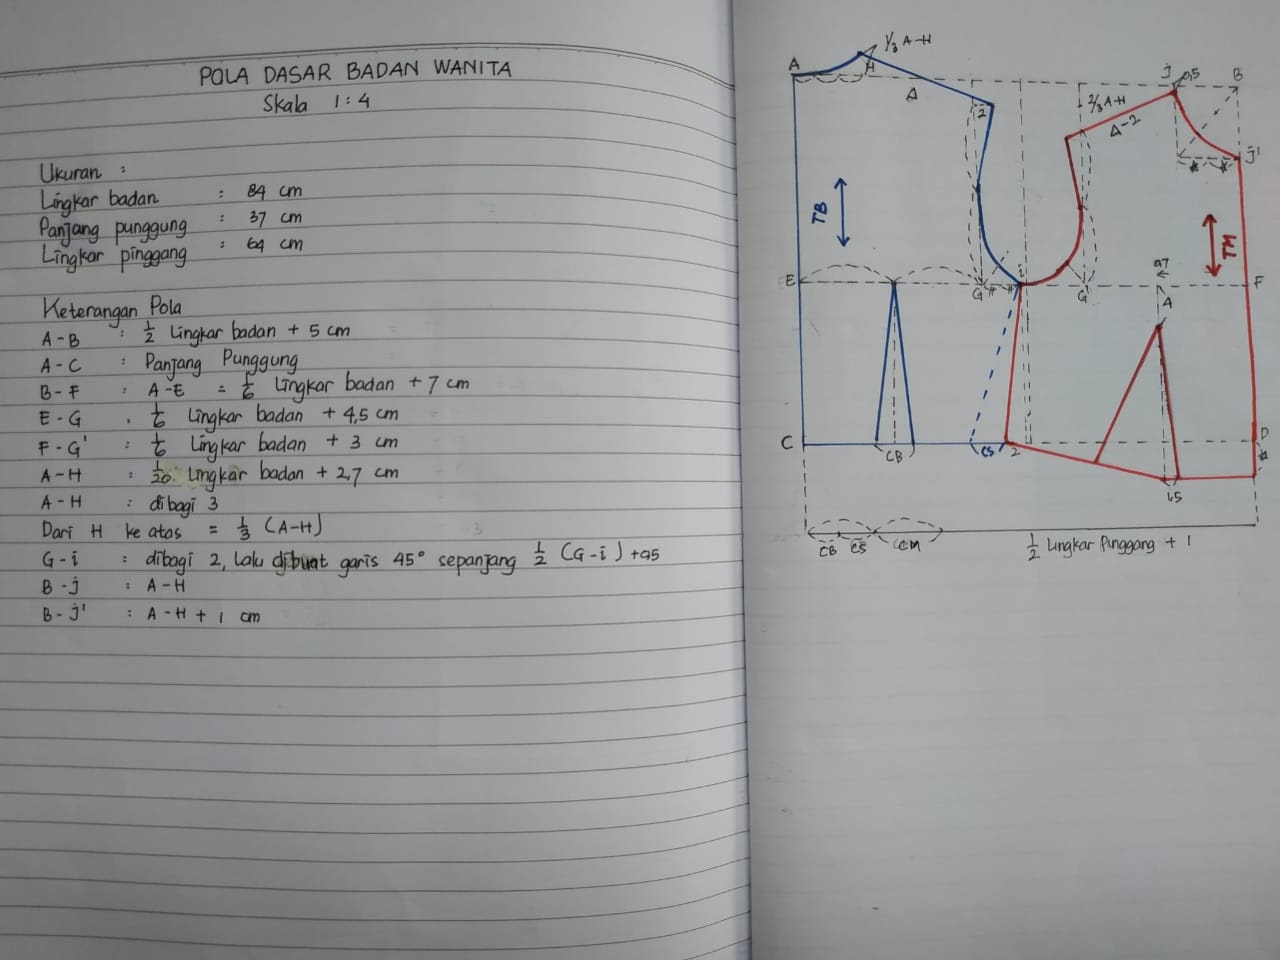 POLA DASAR BADAN WANITA
Skala 1 : 4
Ukuran :
Lingkar badan : 84 cm
Panjang punggung : 37 cm
Lingkar pinggang : 64 cm
Keterangan Pola
A-B : 1/2 Lingkar badan + 5 cm
A-C : Panjang Punggung
B-F : A-E = 1/6 Lingkar badan + 7 cm
E-G : 1/6 Lingkar badan + 4,5 cm
F-G' : 1/6 Lingkar badan + 3 cm
A-H : 1/20 Lingkar badan + 2,7 cm
A-H : dibagi 3
Dari H ke atas = 1/3 (A-H)
G-i : dibagi 2, Lalu dibuat garis 45° sepanjang 1/2 (G-i) + 0,5
B-j : A-H
B-j' : A-H + 1 cm
1/3 A-H
A H j 0,5 B
Δ 2 2/3 A-H
Δ-2
j'
TB TM
0,7
E G G' F
A
C CB CS 2 D
1,5
CB CS CM 1/2 Lingkar Pinggang + 1